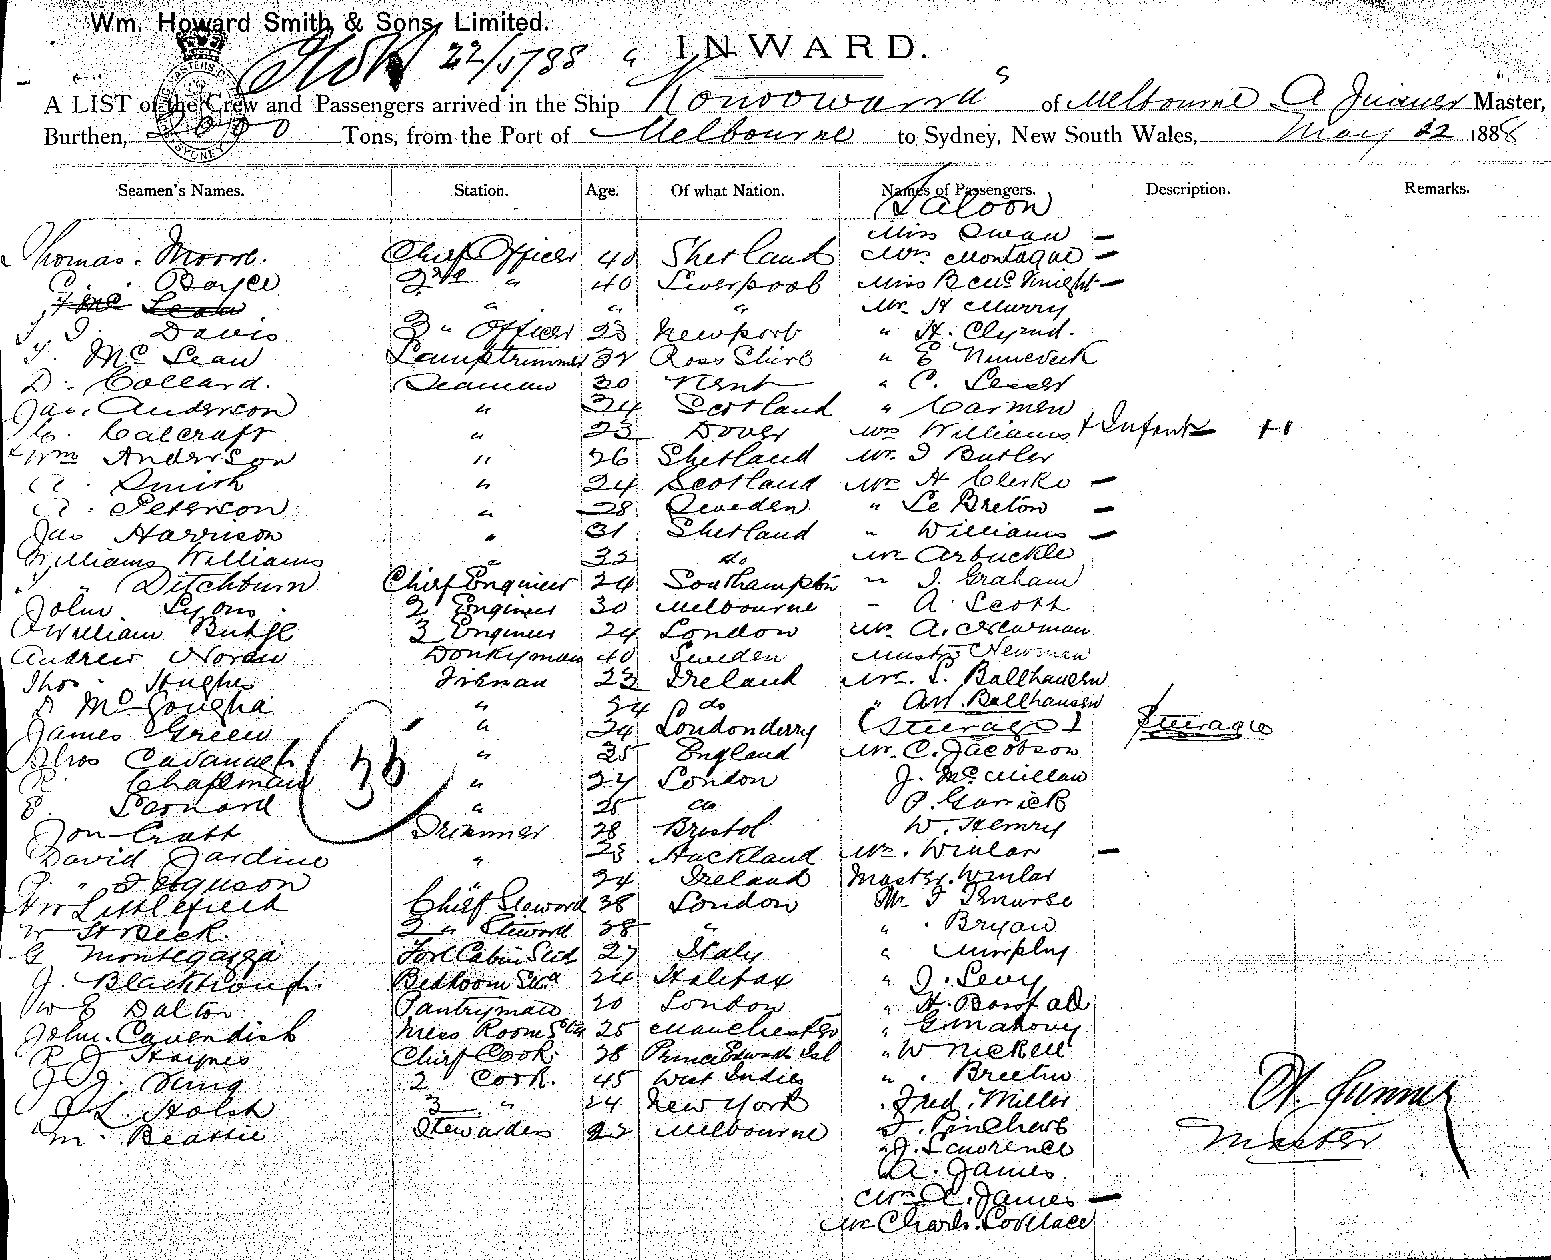 Wm. Howard Smith & Sons, Limited.
22/5/88
INWARD.
A LIST of the Crew and Passengers arrived in the Ship "Konoowarra" of Melbourne A Master,
Burthen, 2000 Tons, from the Port of Melbourne to Sydney, New South Wales, May 22 1888
Seamen's Names. Station. Age. Of what Nation. Names of Passengers. Description. Remarks.
Saloon
Miss Swan —
Thomas Moore. Chief Officer 40 Shetland Mrs Montague —
C. Boyce 2nd " 40 Liverpool Miss B McKnight —
" " " Mr H Murry
J Davis 3 " Officer 23 Newport " H.
T. McLean Lamptrimmer 32 Ross Shire " E
D. Collard. Seaman 30 Kent " C. Lesser
Jas. Anderson " 34 Scotland " Carmen
Calcraft " 23 Dover Mrs Williams + Infant —
Wm Anderson " 26 Shetland Mr J Butler
A. Smith " 24 Scotland Mrs H Clerke —
A. Peterson " 28 Sweden " Le Breton —
Jas Harrison " 31 Shetland " Williams —
Williams Williams " 32 do Mr Arbuckle
J " Ditchburn Chief Engineer 24 Southampton " J. Graham
John Lyons 2 Engineer 30 Melbourne " A. Scott
William Budge 3 Engineer 24 London Mr A. Newman
Andrew Noren Donkeyman 40 Sweden Mastr Newman
Thos Hughes Fireman 23 Ireland Mr. L. Ballhausen
D McGougha " 24 do " Art. Ballhausen
James Green " 24 Londonderry (Steerage) Steerage
Thos Cavanagh " 35 England Mr. C. Jacobson
R. Chapman " 27 London J. McMillan
E Leonard " 25 do P. Garrick
36
Jon Croft Trimmer 28 Bristol W. Henry
David Jardine " 23 Auckland Mrs. Winlar —
J " Ferguson " 24 Ireland Master Winlar
Littlefield Chief Steward 38 London Mr J
W St Beck 2 " Steward 38 " " Bryan
G Montegazga Fore Cabin Std 27 Italy " Murphy
J. Bedroom Std 24 Halifax " J. Levy
W E Dalton Pantryman 20 London " H.
John Cavendish Mess Room Std 25 Manchester " G Mahony
R J Haynes Chief Cook 28 Prince Edwards Isl " W Nickell
J. J. King 2 Cook. 45 West Indies " .
J L Holsh 3 " 24 New York . Fred. Miller
M. Beattie Stewardess 22 Melbourne J.
" J. Lawrence
A. James
Mrs A. James —
Mr Charls. Lovelace
Master